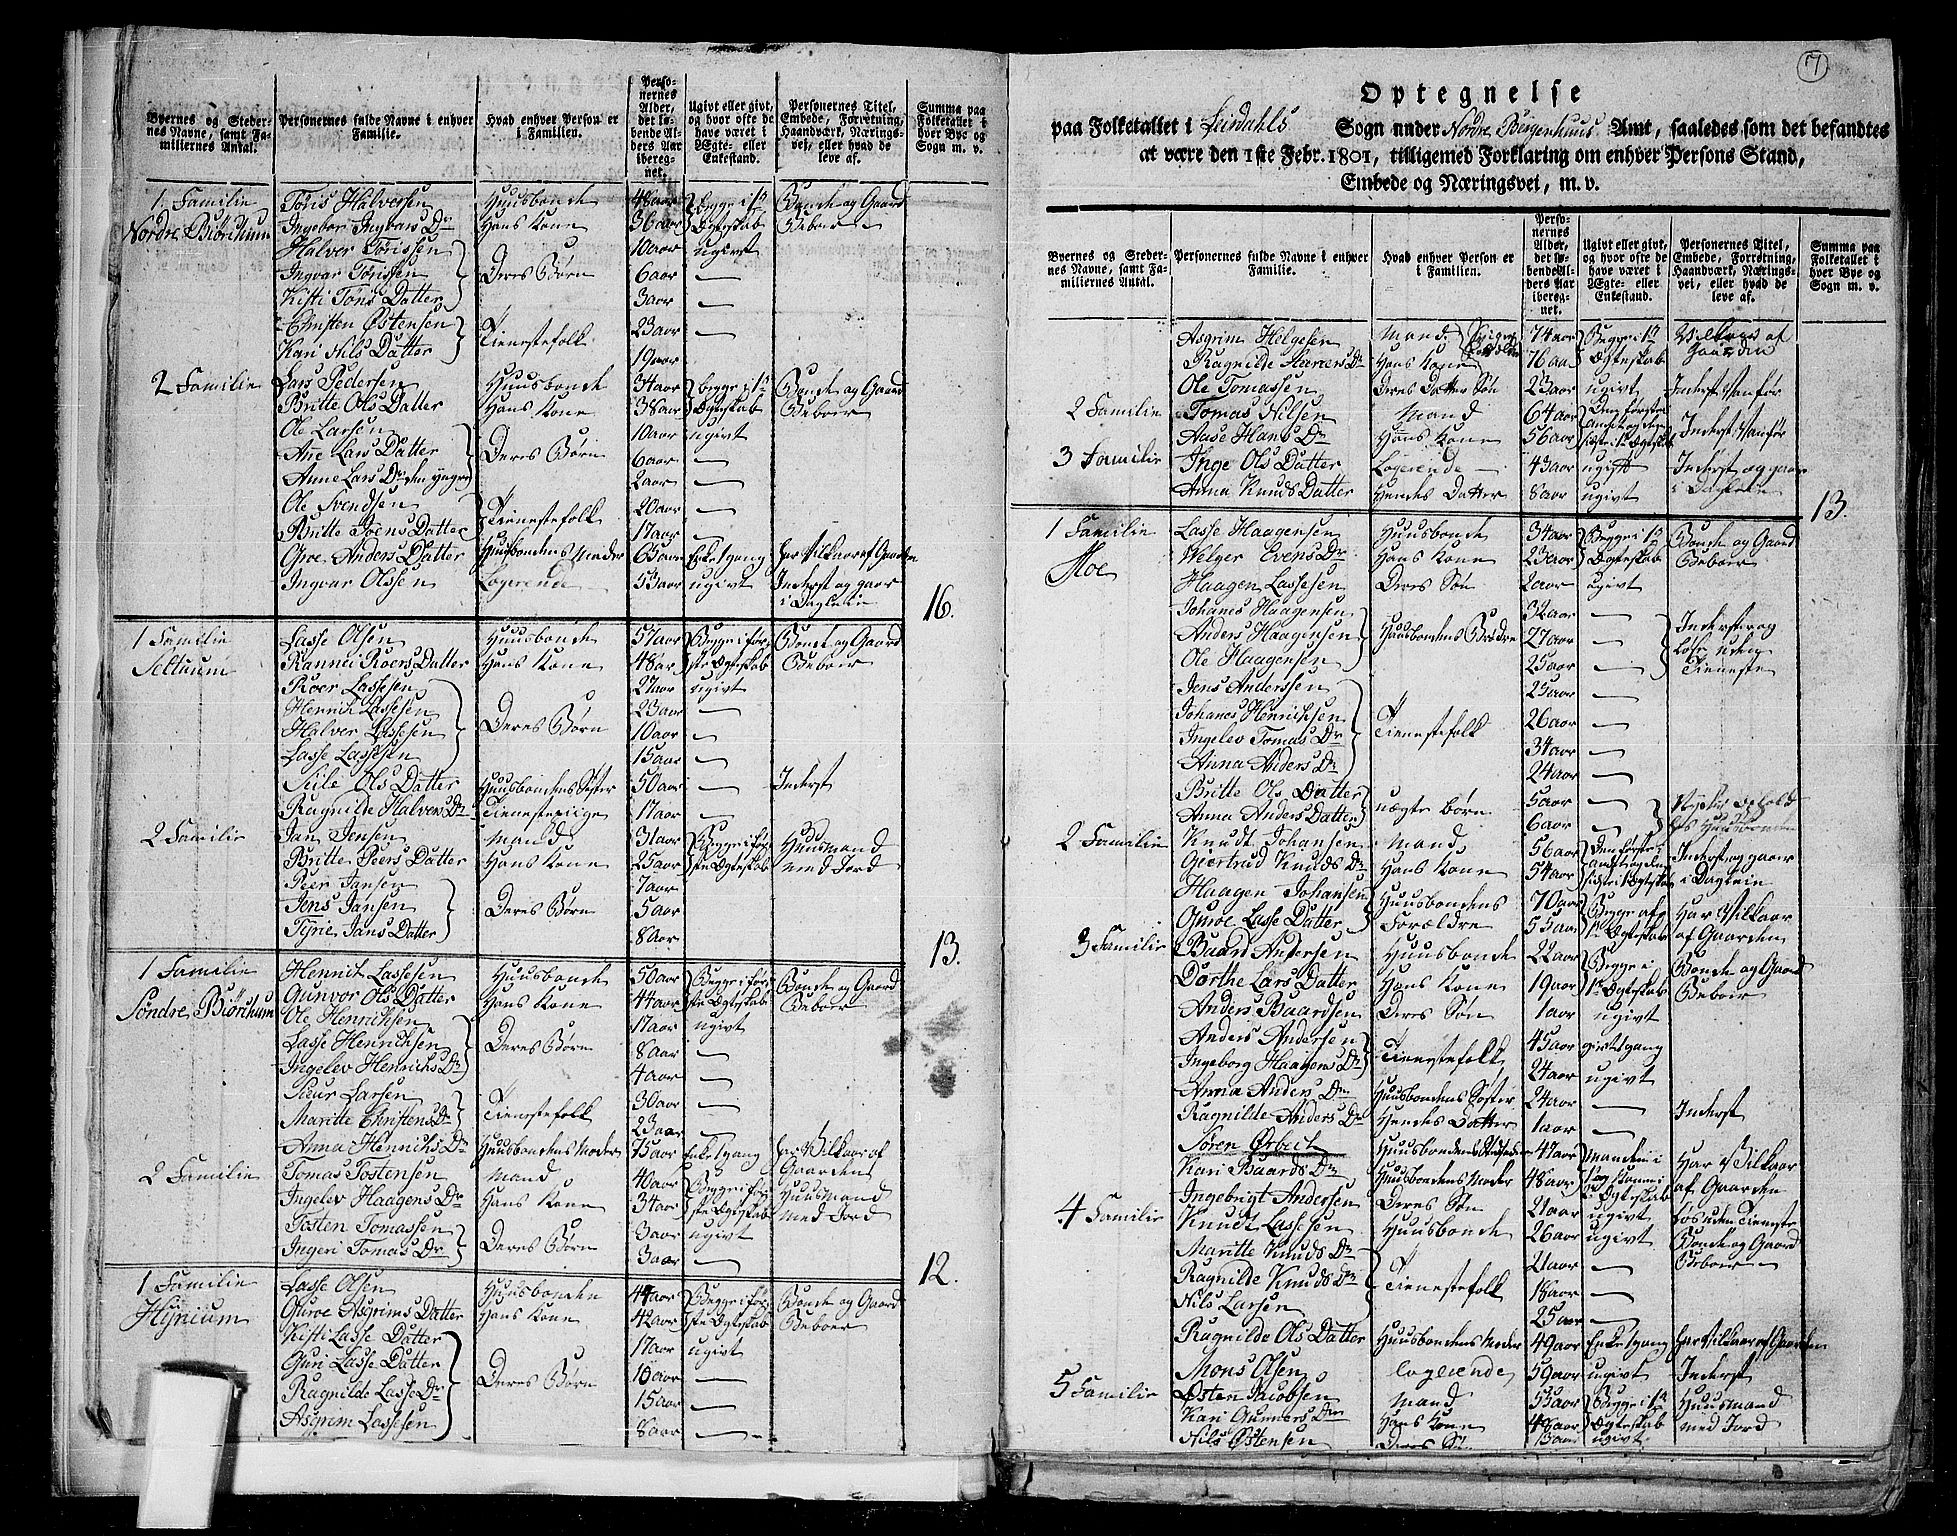 Byernes og Steder- nes Navne, samt Fa- miliernes Antal.
Personernes fulde Navne i enhver Familie.
Hvad enhver Person er i Familien.
Perso- nernes Alder, det lø- bende Al- ders Aar iberegnet.
Ugivt eller givt, og hvor ofte de have været i Ægte- eller Enkestand.
Personernes Titel, Embede, Forretning, Haandværk, Nærings- vei, eller hvad de leve af.
Summa paa Folketallet i hver Bye og Sogn m. v.
1. Familie Toris Halversen Huusbonde 48 aar Begge i 1ste Bonde og Gaard
Nordre Biörchum Ingebor Ingvars Dr Hans Kone 36 aar Ægteskab Beboer
Halver Torissen 10 aar ugivt
Ingvar Torissen Deres Börn 6 aar —
Kisti Toris Datter 3 aar —
Christen Østensen Tienestefolk 23 aar —
Kari Nils Datter 19 aar —
2 Familie Lars Pedersen Huusbonde 34 aar begge i 1ste Bonde og Gaard
Britte Ols Datter Hans Kone 38 aar Ægteskab Beboer
Ole Larsen 10 aar ugivt
Ane Lars Datter Deres Börn 6 aar —
Anne Lars Dr den yngre 2 aar —
Ole Svendsen Tienestefolk 20 aar —
Britte Joens Datter 17 aar —
Groe Anders Datter Huusbondens Moder 63 aar Enke 1 gang har Vilkaar af Gaarden
Ingvar Olssen Logerende 53 aar ugivt Inderst og gaar i Dagleie
16.
1 Familie Lasse Olsen Huusbonde 57 aar Begge i før- Bonde og Gaard
Seltuum Rannei Roers Datter Hans Kone 48 aar ste Ægteskab Beboer
Roer Lassesen 27 aar ugivt
Henrich Lassesen 23 aar —
Halver Lassesen Deres Børn 10 aar —
Lasse Lassesen 15 aar —
Sille Ols Datter Huusbondens Søster 50 aar — Inderst
Ragnilde Halvers Dr Tienestepiige 17 aar —
2 Familie Jan Jensen Mand 31 aar Begge i før- Huusmand
Britte Peers Datter Hans Kone 25 aar ste Ægteskab med Jord
Peer Jansen 7 aar
Jens Jansen Deres Børn 5 aar
Tyrie Jans Datter 8 aar
13.
1 Familie Henrich Lassesen Huusbonde 50 aar Begge i før- Bonde og Gaard
Söndre Biörchum Gunvor Ols Datter Hans Kone 44 aar ste Ægteskab Beboer
Ole Henrichsen 17 aar ugivt
Lasse Henrichsen Deres Børn 8 aar —
Ingelev Henrichs Dr 4 aar —
Siur Larsen Tienestefolk 30 aar —
Maritte Christens Dr 23 aar —
Anna Henrichs Dr Huusbondens Moder 75 aar Enke 1 gang har Vilkaar af Gaarden
2 Familie Tomas Tostensen Mand 40 aar Begge i før- Huusmand
Ingelev Haagens Dr Hans Kone 34 aar ste Ægteskab med Jord
Tosten Tomassen Deres Børn 3 aar ugivt
Ingeri Tomas Dr 3 aar —
12.
1 Familie Lasse Olsen Huusbonde 44 aar Begge i før- Bonde og Gaard
Hynium Guroe Asgrims Datter Hans Kone 42 aar ste Ægteskab Beboer
Kisti Lasse Datter 17 aar ugivt
Guri Lasse Datter Deres Børn 16 aar —
Ragnilde Lasse Dr 15 aar —
Asgrim Lassesen 8 aar —
7
Optegnelse
paa Folketallet i Leirdahls Sogn under Nordre Bergenhuus Amt, saaledes som det befandtes
at være den 1ste Febr. 1801, tilligemed Forklaring om enhver Persons Stand,
Embede og Næringsvei, m. v.
Byernes og Steder- nes Navne, samt Fa- miliernes Antal.
Personernes fulde Navne i enhver Familie.
Hvad enhver Person er i Familien.
Perso- nernes Alder, det lø- bende Al- ders Aar iberegnet.
Ugivt eller givt, og hvor ofte de have været i Ægte- eller Enkestand.
Personernes Titel, Embede, Forretning, Haandværk, Nærings- vei, eller hvad de leve af.
Summa paa Folketallet i hver Bye og Sogn m. v.
Asgrim Helgesen Mand 74 aar Begge i 1ste Vilkaar af
Ragnilde Hans Kone 76 aar Ægteskab Gaarden
Ole Tomassen Deres Datter Søn 23 aar ugivt Inderst Vanfør
2 Familie Tomas Nilsen Mand 64 aar Den første i
Aase Hans Dr Hans Kone 56 aar Inderst Vanfør
3 Familie Inge Ols Datter Logerende — 43 aar ugivt Inderst og gaar
Anna Knuds Datter Hendes Datter 8 aar ugivt i Dagleie
13.
1 Familie Lasse Haagensen Huusbonde 34 aar Begge i 1ste Bonde og Gaard
Moe Helger Evens Dr Hans Kone 23 aar Ægteskab Beboer
Haagen Lassesen Deres Søn 2 aar ugivt
Johanes Haagensen 32 aar — Inderster og
Anders Haagensen Huusbondens Brødre 27 aar — løse uden
Ole Haagensen 25 aar — Tieneste
Jens Anderssen 25 aar —
Johanes Henrichsen Tienestefolk 26 aar —
Ingelev Tomas Dr 34 aar —
Anna Anders Dr 24 aar —
Britte Ols Datter uægte Børn 5 aar — Nyder Ophold
Anna Anders Datter 6 aar —
2 Familie Knudt Johansen Mand 56 aar Den første i Inderst og gaar
Giertrud Knuds Dr Hans Kone 54 aar i Dagleie
Haagen Johansen Huusbondens 70 aar Begge af Har Vilkaar
Guroe Lasse Datter Forældre 55 aar Ægteskab af Gaarden
3 Familie Baard Andersen Huusbonde 22 aar Begge i Bonde og Gaard
Dorthe Lars Datter Hans Kone 19 aar 1te Ægteskab Beboer
Anders Baardsen Deres Søn 1 aar ugivt
Anders Andersen Tienestefolk 45 aar givt 1 gang
Ingeborg Haagens Dr 24 aar ugivt
Anna Anders Dr Huusbondens Søster 24 aar —
Ragnilde Anders Dr Hendes Datter 1 aar — Inderst
Søren Ørbech Huusbondens 47 aar Manden i Har Vilkaar
Kari Baards Dr Huusbondens Moder 48 aar af Gaarden
Ingebrigt Andersen Deres Søn 21 aar ugivt Løs uden Tieneste
4 Familie Knudt Lassesen Huusbonde 26 aar ugivt Bonde og Gaard
Maritte Knuds Dr 21 aar — Beboer
Ragnilde Knuds Dr Tienestefolk 18 aar —
Nils Larsen 25 aar —
Ragnilde Ols Datter Huusbondens Moder 49 aar Enke 1 gang har Vilkaar af Gaarden
Mons Olsen logerende 59 aar ugivt Inderst
5 Familie Østen Jacobsen Mand 53 aar Begge i 1ste Huusmand
Kari Gunners Dr Hans Kone 49 aar Ægteskab med Jord
Nils Østensen Deres Søn 13 aar ugivt